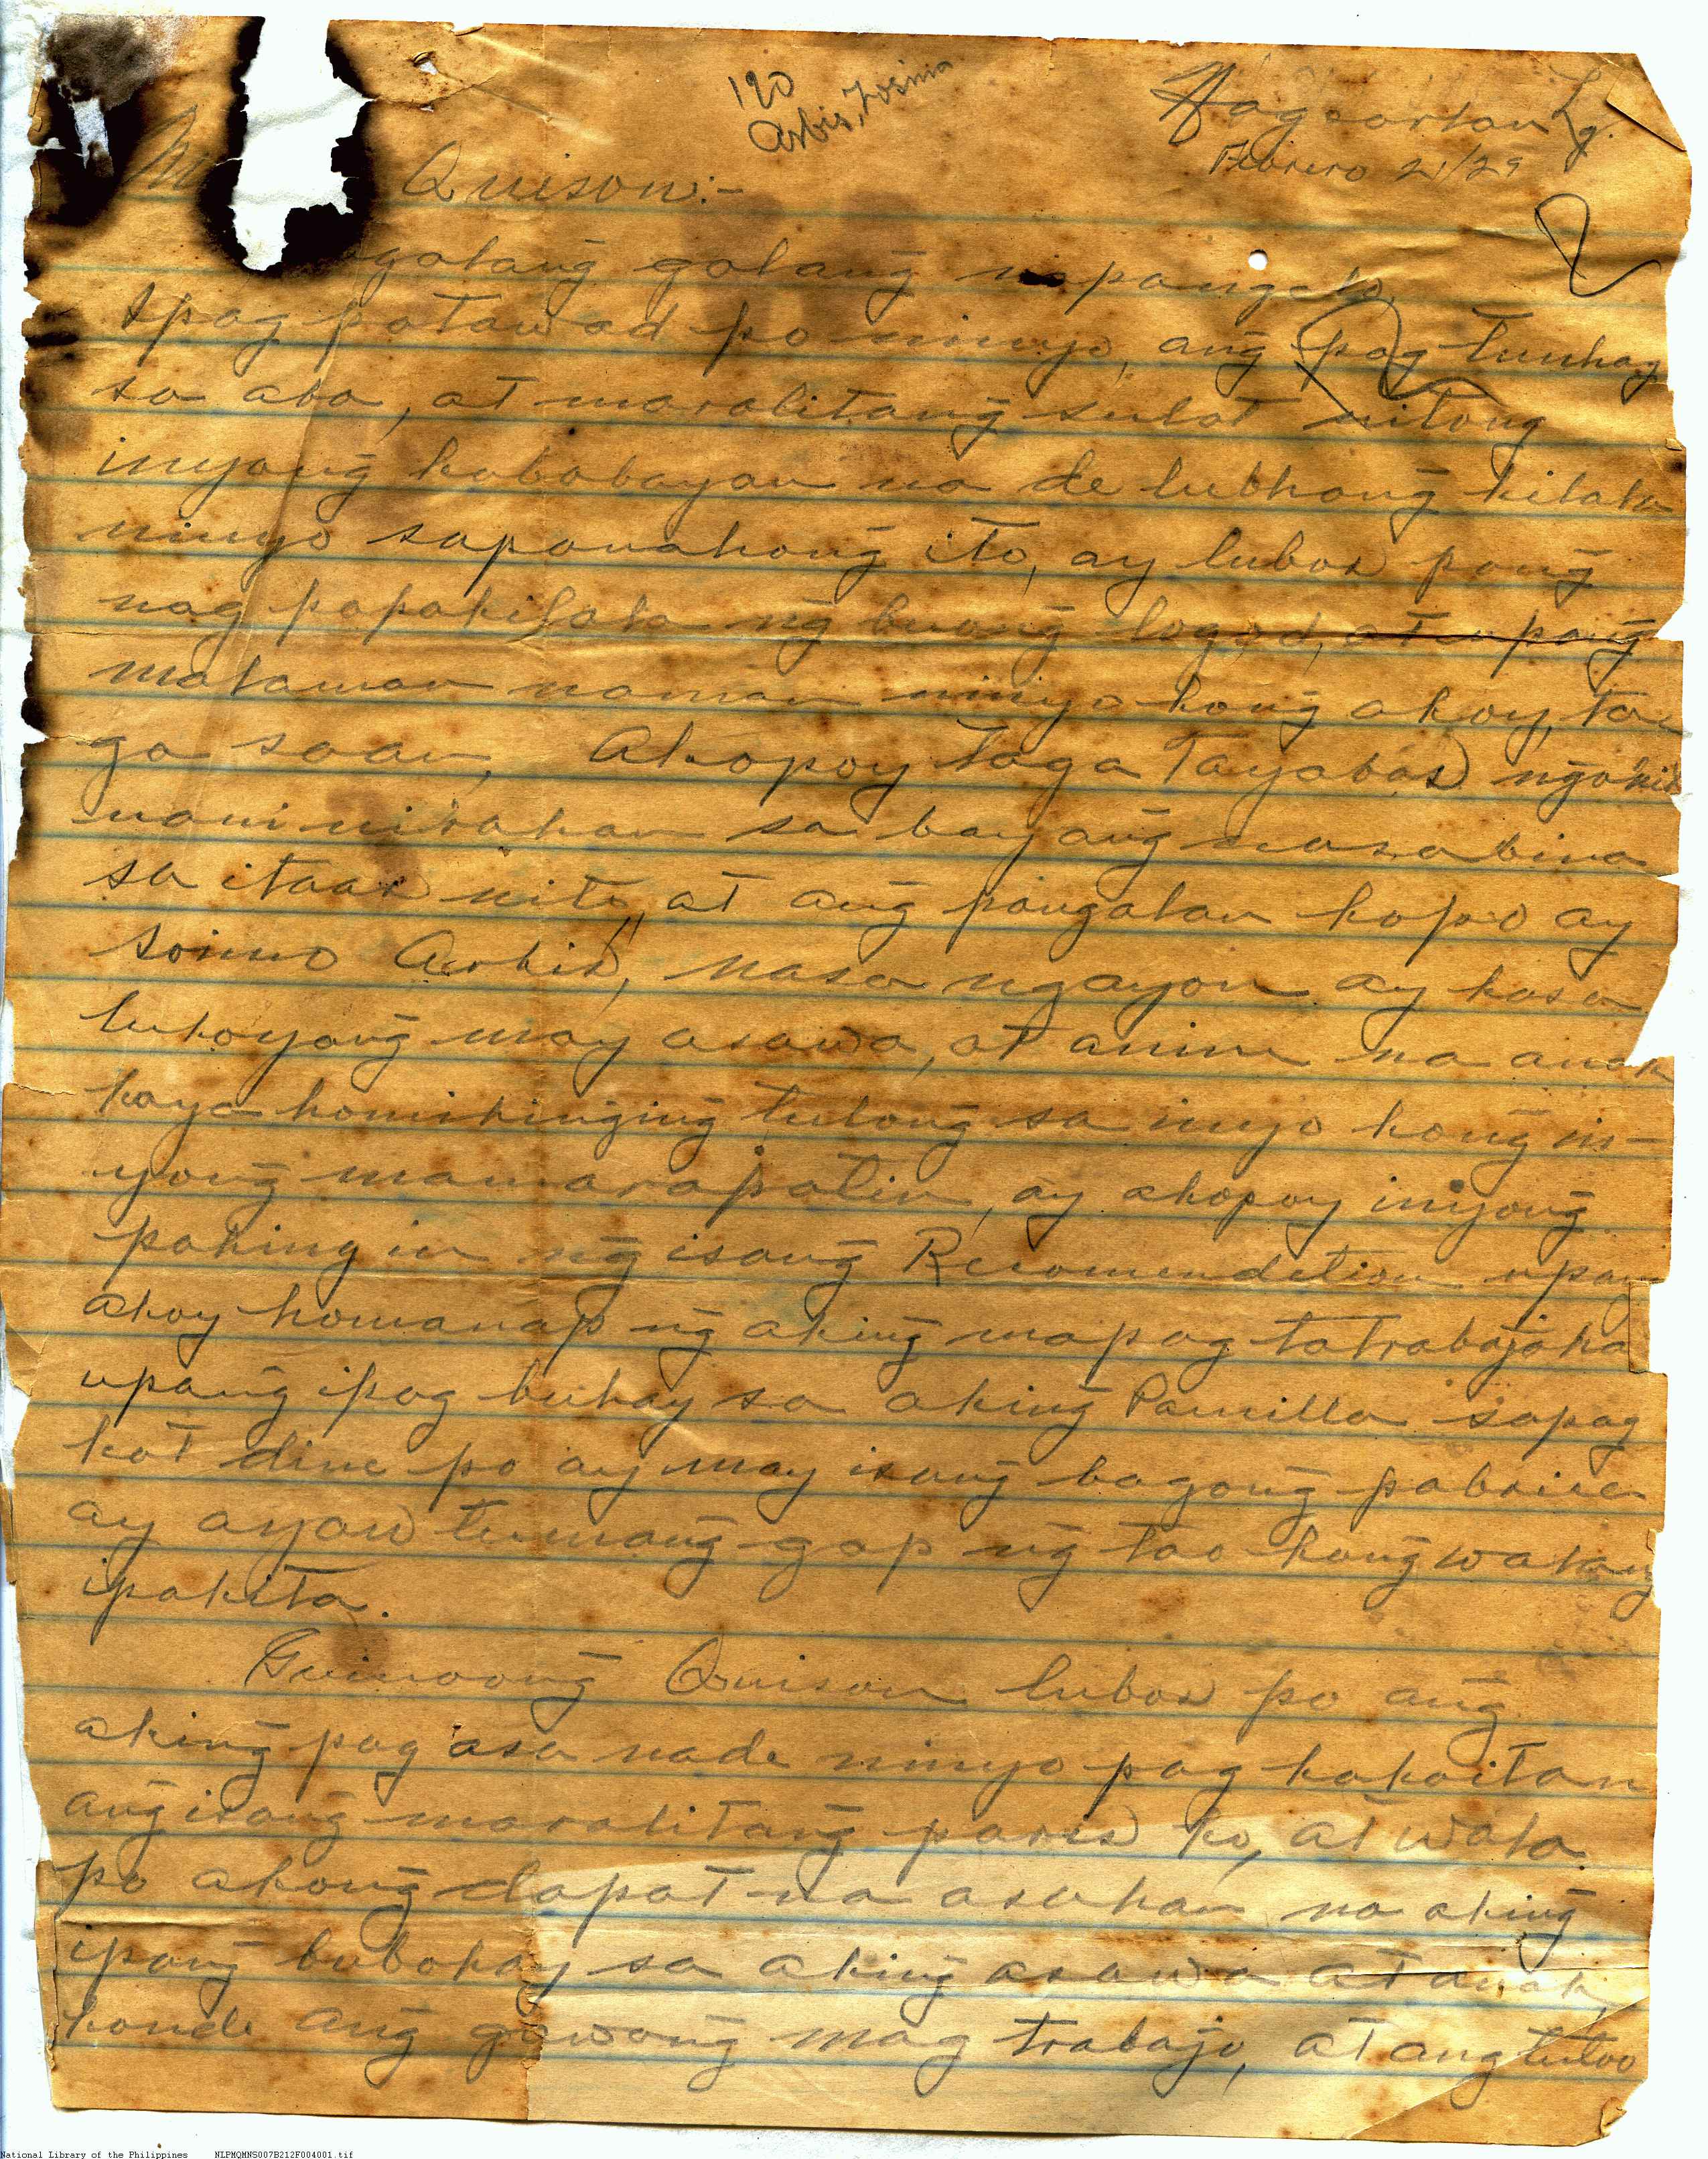 190
Arbis, Zosimo
Nagcarlan Lg.
Febrero 21/29
Quison:-
galang galang na pangalo,
Ipag patawad po ninyo, ang pag tunhay
sa aba, at maralitang sulat nitong
inyong kababayan na de lubhang kilala
ninyo sapanahong ito, ay lubos pong
nag papakilala ng buong logod, at upang
malaman naman ninyo kong akoy, ta
ga saan, Akopoy taga Tayabas ngunit
naninirahan sa bayang nasabina
sa itaas nito, at ang pangalan kopo ay
Soimo Aerbis, nasa ngayon ay kasa
lukoyang may asawa, at anim na anak
kaya homihinging tulong sa inyo kong in-
yong mamarapatin, ay akopoy inyong
pahingin ng isang Recomendetion upang
akoy homanap ng aking mapag tatrabajoha
upang ipag buhay sa aking Pamilla sapag
kat dine po ay may isang bagong pabrica
ay ayaw tumang gap ng tao kong walang
ipakita.
Guinoong Quison lubos po ang
aking pag asa nade ninyo pag kakaitan
ang isang maralitang paris ko, at wala
po akong dapat na asahan na aking
ipang bubohay sa aking asawa at anak,
konde ang gawang mag trabajo, at ang tutoo
National Library of the Philippines NLPMQMNS007B212F004001.tif